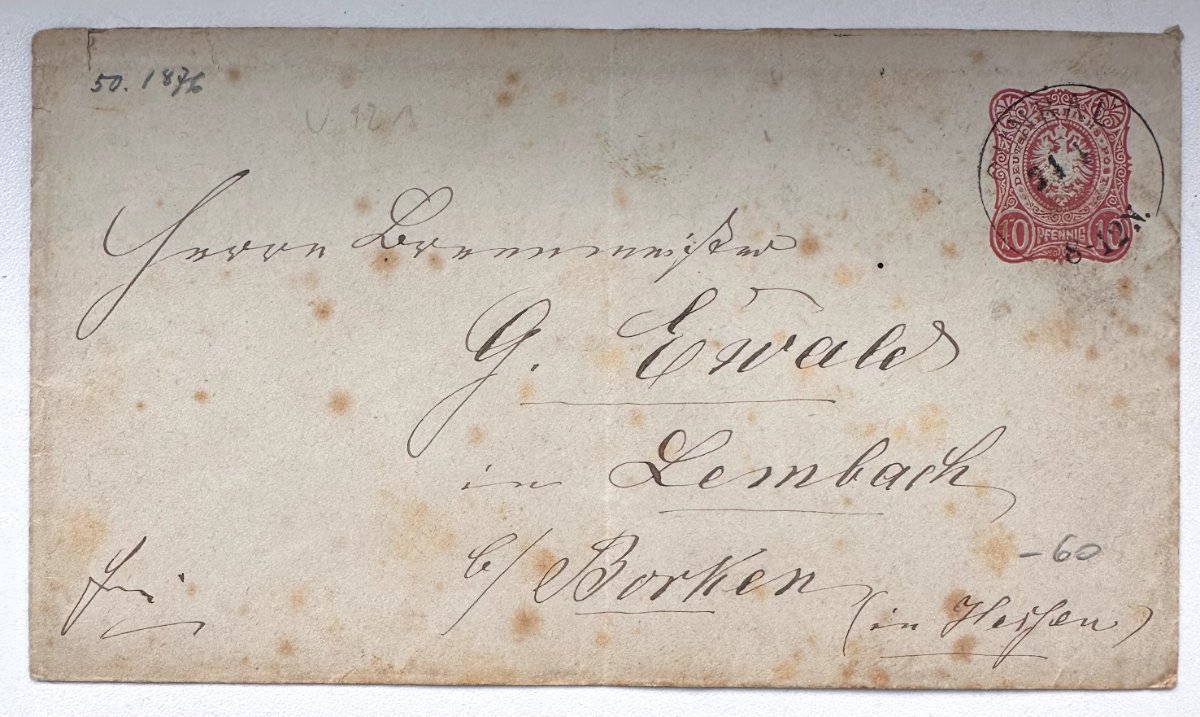 50. 1876
U 12 A
DEUTSCHE REICHS-POST
10 PFENNIG 10
8-12N.
Herrn Brennmeister
G. Ewald
in Lembach
b/ Borken
(in Hessen)
frei
-60